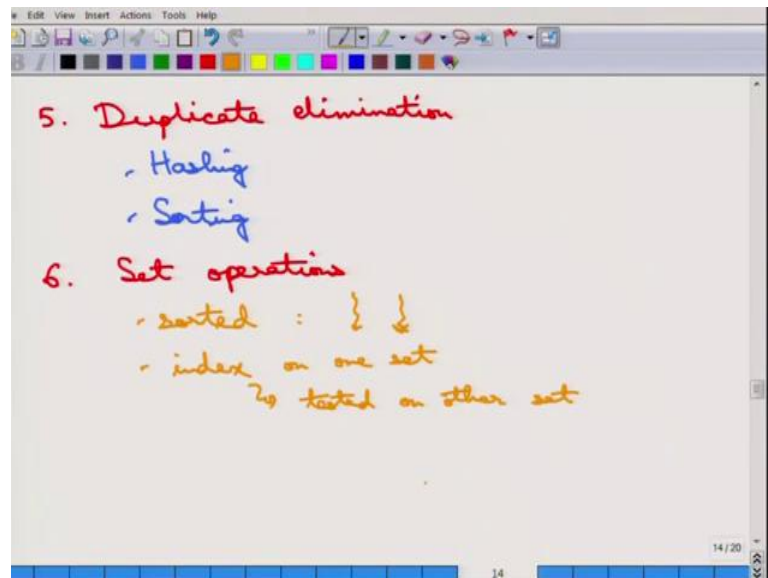 Edit View Insert Actions Tools Help
5. Duplicate elimination
- Hashing
- Sorting
6. Set operations
- sorted :
- index on one set
tested on other set
14 / 20
14